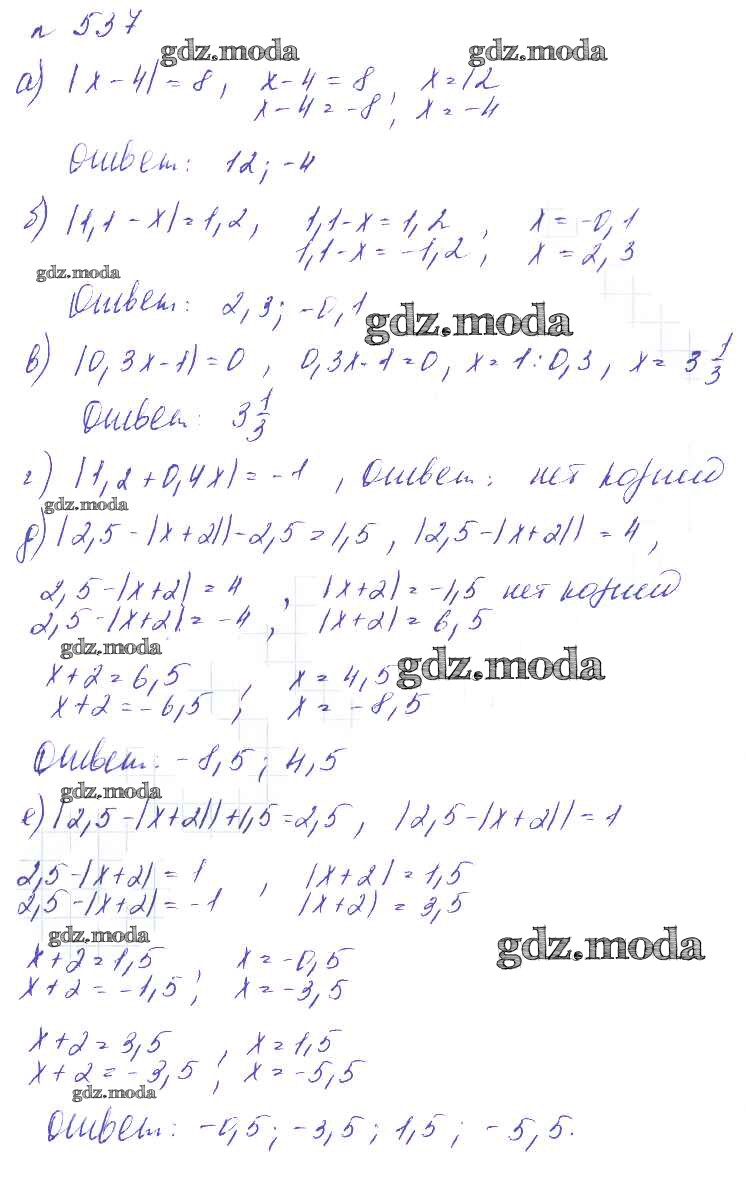 n 537
gdz.moda gdz.moda
а) |x-4|=8, x-4=8, x=12
x-4=-8; x=-4
Ответ: 12; -4
б) |1,1-x|=1,2, 1,1-x=1,2, x=-0,1
1,1-x=-1,2; x=2,3
gdz.moda
Ответ: 2,3; -0,1
gdz.moda
в) |0,3x-1|=0, 0,3x-1=0, x=1:0,3, x=3 1/3
Ответ: 3 1/3
г) |1,2+0,4x|=-1, Ответ: нет корней
gdz.moda
д) |2,5-|x+2||-2,5=1,5, |2,5-|x+2||=4,
2,5-|x+2|=4, |x+2|=-1,5 нет корней
2,5-|x+2|=-4, |x+2|=6,5
gdz.moda gdz.moda
x+2=6,5, x=4,5
x+2=-6,5; x=-8,5
Ответ: -8,5; 4,5
gdz.moda
е) |2,5-|x+2||+1,5=2,5, |2,5-|x+2||=1
2,5-|x+2|=1, |x+2|=1,5
2,5-|x+2|=-1 |x+2|=3,5
gdz.moda gdz.moda
x+2=1,5, x=-0,5
x+2=-1,5; x=-3,5
x+2=3,5, x=1,5
x+2=-3,5; x=-5,5
gdz.moda
Ответ: -0,5; -3,5; 1,5; -5,5.